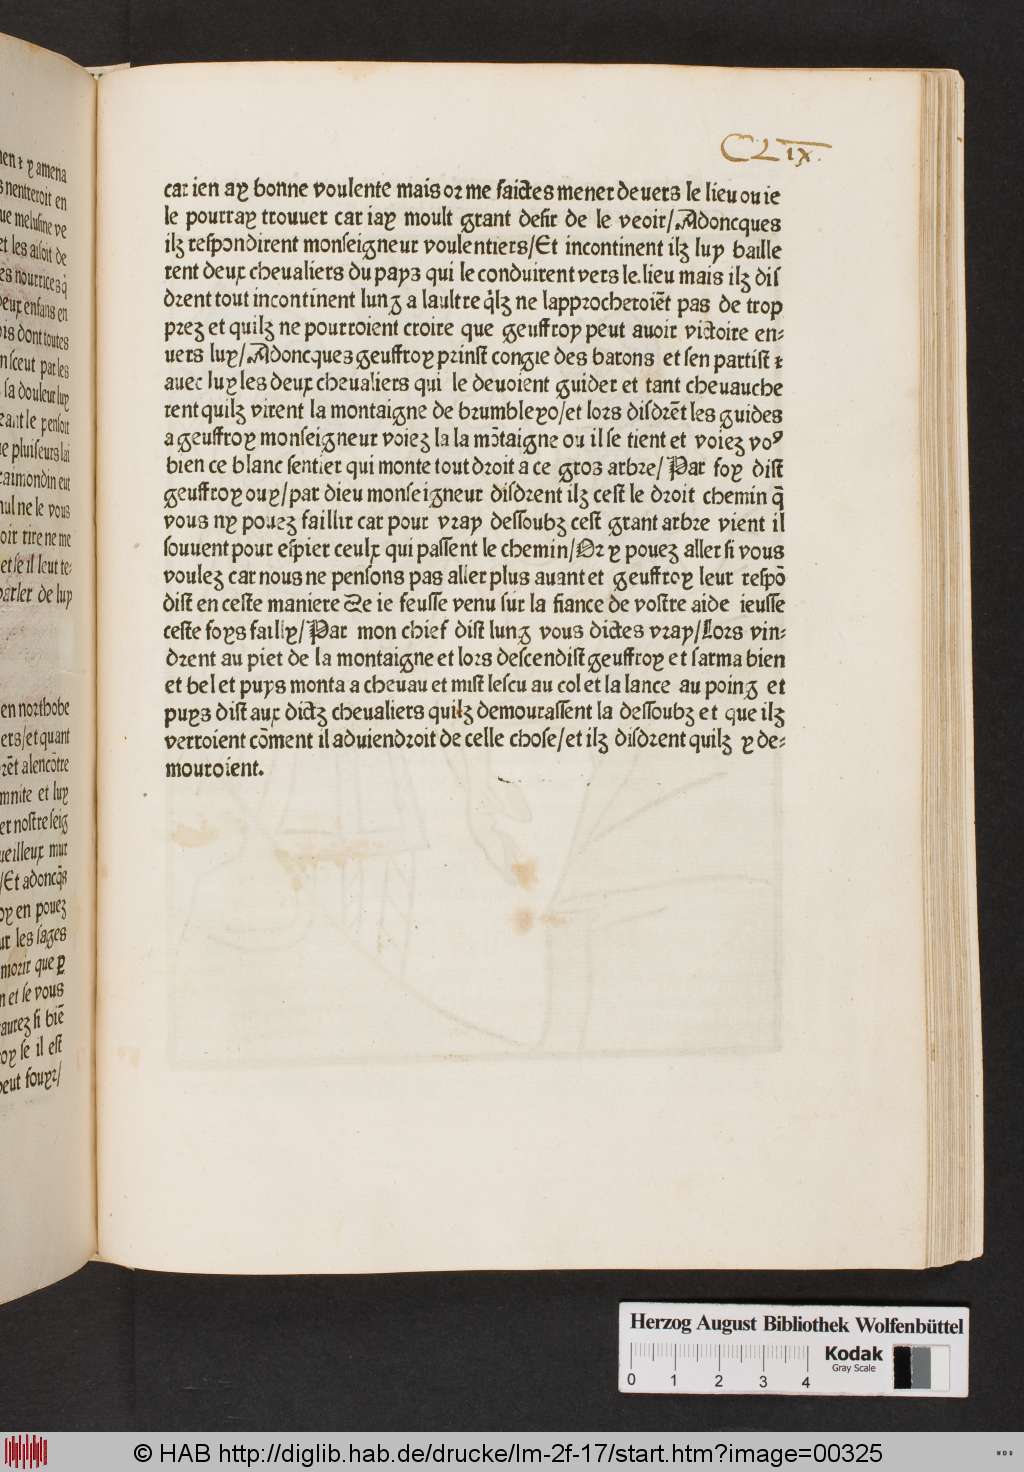 CLIX.
car ien ay bonne voulente mais or me faictes mener de vers le lieu ou ie
le pourray trouver car iay moult grant desir de le veoir/Adoncques
ilz respondirent monseigneur voulentiers/Et incontinent ilz luy baille
rent deux chevaliers du pays qui le conduirent vers le lieu mais ilz dis
drent tout incontinent lung a laultre q̃lz ne lapprocheroiẽt pas de trop
prez et quilz ne pourroient croire que geuffroy peut avoir victoire en-
vers luy/Adoncques geuffroy prinst congie des barons et sen partist ⁊
avec luy les deux chevaliers qui le devoient guider et tant chevauche
rent quilz virent la montaigne de brumbleyo/et lors disdrẽt les guides
a geuffroy monseigneur voiez la la mõtaigne ou il se tient et voiez voꝰ
bien ce blanc sentier qui monte tout droit a ce gros arbre/Par foy dist
geuffroy ouy/par dieu monseigneur disdrent ilz cest le droit chemin q̃
vous ny povez faillir car pour vray dessoubz cest grant arbre vient il
souvent pour espier ceulx qui passent le chemin/Or y povez aller si vous
voulez car nous ne pensons pas aller plus avant et geuffroy leur respõ
dist en ceste maniere Se ie feusse venu sur la fiance de vostre aide ieusse
ceste foys failly/Par mon chief dist lung vous dictes vray/Lors vin-
drent au piet de la montaigne et lors descendist geuffroy et sarma bien
et bel et puys monta a chevau et mist lescu au col et la lance au poing et
puys dist aux dictz chevaliers quilz demourassent la dessoubz et que ilz
verroient cõment il adviendroit de celle chose/et ilz disdrent quilz y de-
mouroient.
y amena
nentreroit en
melusine ve
et les aisoit de
nourrices q̃
enfans en
dont toutes
sceut par les
sa douleur luy
le pensoit
pluiseurs lai
raimondin eut
nul ne le vous
rire ne me
et se il leut te-
parler de luy
en northobe
et quant
a lencõtre
et luy
nostre seig
mur
/Et adoncq̃s
en povez
les sages
morir que p̲
et se vous
si biẽ
se il est
peut fouyr/
Herzog August Bibliothek Wolfenbüttel
Kodak
Gray Scale
0 1 2 3 4
© HAB http://diglib.hab.de/drucke/lm-2f-17/start.htm?image=00325